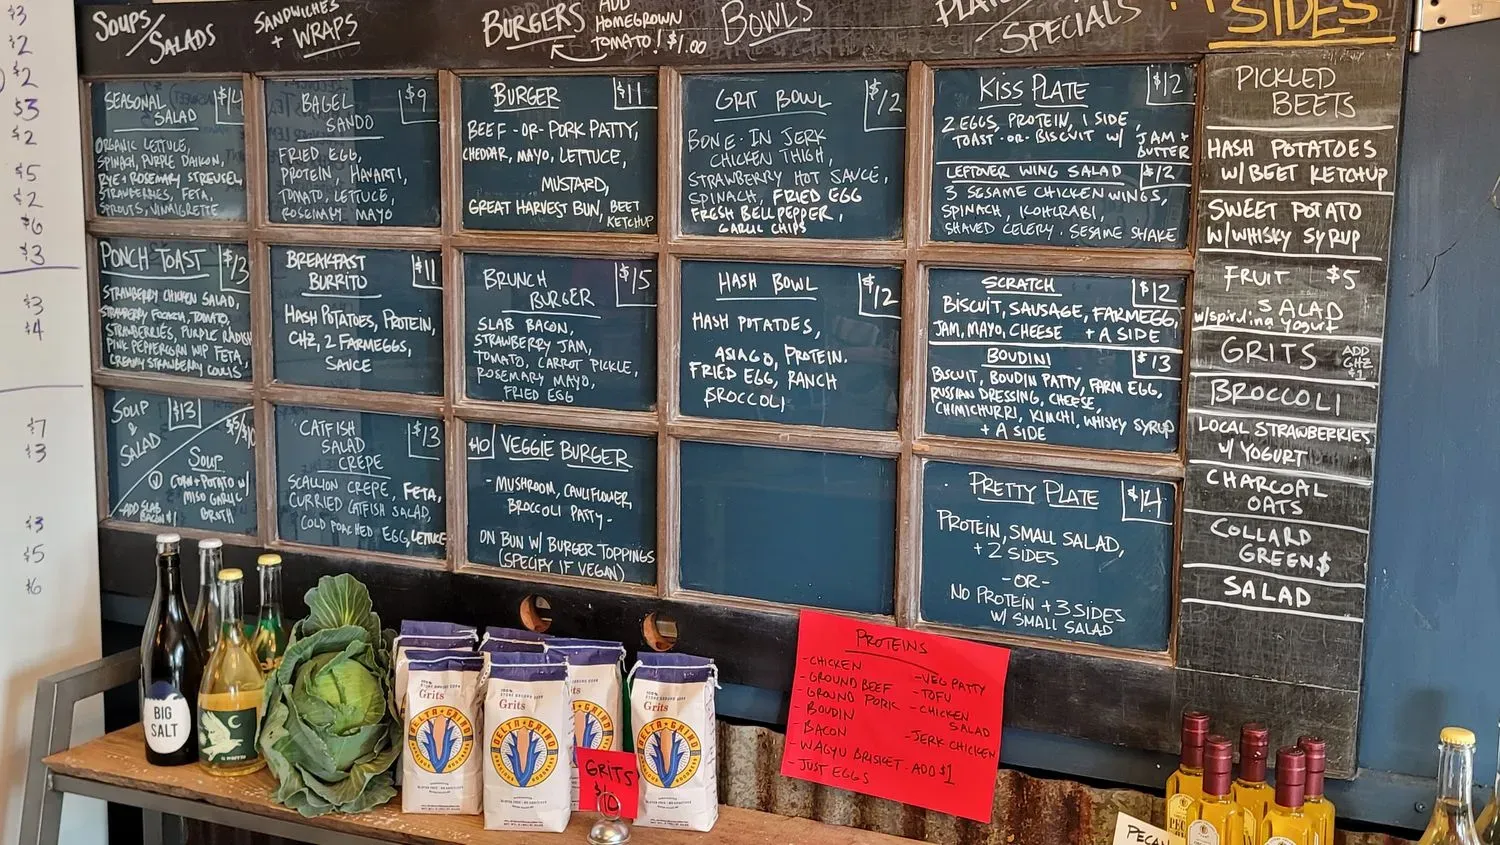 $3
$2
$2
$3
$2
$5
$2
$6
$3
$3
$4
$7
$3
$3
$5
$6
SOUPS/
SALADS
SEASONAL
SALAD
$14
ORGANIC LETTUCE,
SPINACH, PURPLE DAIKON,
RYE + ROSEMARY STREUSEL,
STRAWBERRIES, FETA,
SPROUTS, VINAIGRETTE
PONCH TOAST
$13
STRAWBERRY CHICKEN SALAD,
STRAWBERRY FOCACCIA, TOMATO,
STRAWBERRIES, PURPLE RADISH
PINK PEPPERCORN WIP FETA,
CREAMY STRAWBERRY COULIS
SOUP
&
SALAD
$13
$9/$10
SOUP
CORN + POTATO W/
MISO GARLIC
BROTH
-ADD SLAB
BACON $1
SANDWICHES
+ WRAPS
BAGEL
SANDO
$9
FRIED EGG,
PROTEIN, HAVARTI,
TOMATO, LETTUCE,
ROSEMARY MAYO
BREAKFAST
BURRITO
$11
HASH POTATOES, PROTEIN,
CHZ, 2 FARMEGGS,
SAUCE
CATFISH
SALAD
CREPE
$13
SCALLION CREPE, FETA,
CURRIED CATFISH SALAD,
COLD POACHED EGG, LETTUCE
BURGERS
ADD
HOMEGROWN
TOMATO! $1.00
BURGER
$11
BEEF -OR- PORK PATTY,
CHEDDAR, MAYO, LETTUCE,
MUSTARD,
GREAT HARVEST BUN, BEET
KETCHUP
BRUNCH
BURGER
$15
SLAB BACON,
STRAWBERRY JAM,
TOMATO, CARROT PICKLE,
ROSEMARY MAYO,
FRIED EGG
$10
VEGGIE BURGER
- MUSHROOM, CAULIFLOWER,
BROCCOLI PATTY -
ON BUN W/ BURGER TOPPINGS
(SPECIFY IF VEGAN)
BOWLS
GRIT BOWL
$12
BONE-IN JERK
CHICKEN THIGH,
STRAWBERRY HOT SAUCE,
SPINACH, FRIED EGG
FRESH BELL PEPPER,
GARLIC CHIPS
HASH BOWL
$12
HASH POTATOES,
ASIAGO, PROTEIN.
FRIED EGG, RANCH
BROCCOLI
SPECIALS
KISS PLATE
$12
2 EGGS, PROTEIN, 1 SIDE
TOAST -OR- BISCUIT W/ JAM +
BUTTER
LEFTOVER WING SALAD $12
3 SESAME CHICKEN WINGS,
SPINACH, KOHLRABI,
SHAVED CELERY. SESAME SHAKE
SCRATCH
$12
BISCUIT, SAUSAGE, FARMEGG,
JAM, MAYO, CHEESE + A SIDE
BOUDINI
$13
BISCUIT, BOUDIN PATTY, FARM EGG,
RUSSIAN DRESSING, CHEESE,
CHIMICHURRI, KIMCHI, WHISKY SYRUP
+ A SIDE
PRETTY PLATE
$14
PROTEIN, SMALL SALAD,
+ 2 SIDES
-OR-
NO PROTEIN + 3 SIDES
W/ SMALL SALAD
SIDES
PICKLED
BEETS
HASH POTATOES
W/ BEET KETCHUP
SWEET POTATO
W/ WHISKY SYRUP
FRUIT $5
SALAD
w/spirulina yogurt
GRITS
ADD
CHZ
$1
BROCCOLI
LOCAL STRAWBERRIES
W/ YOGURT
CHARCOAL
OATS
COLLARD
GREEN$
SALAD
PROTEINS
-CHICKEN
-GROUND BEEF
-GROUND PORK
-BOUDIN
-BACON
-WAGYU BRISKET - ADD $1
-JUST EGGS
-VEG PATTY
-TOFU
-CHICKEN
SALAD
-JERK CHICKEN
BIG
SALT
Grits
DELTA GRIND
Grits
DELTA GRIND
Grits
Grits
DELTA GRIND
GRITS
$10
PECAN